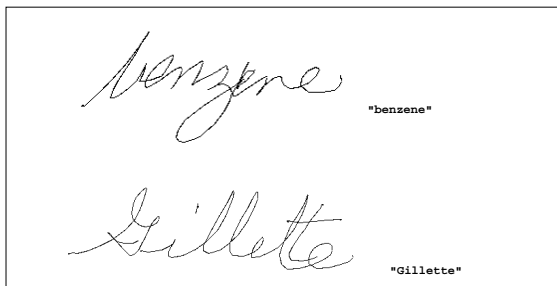 benzene
"benzene"
Gillette
"Gillette"